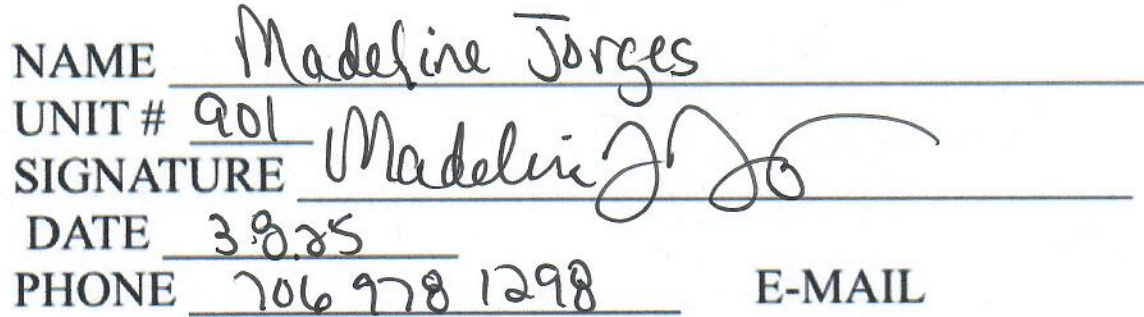 NAME Madeline Jorges
UNIT # 901
SIGNATURE Madeline J
DATE 3.8.25
PHONE 706 978 1298 E-MAIL